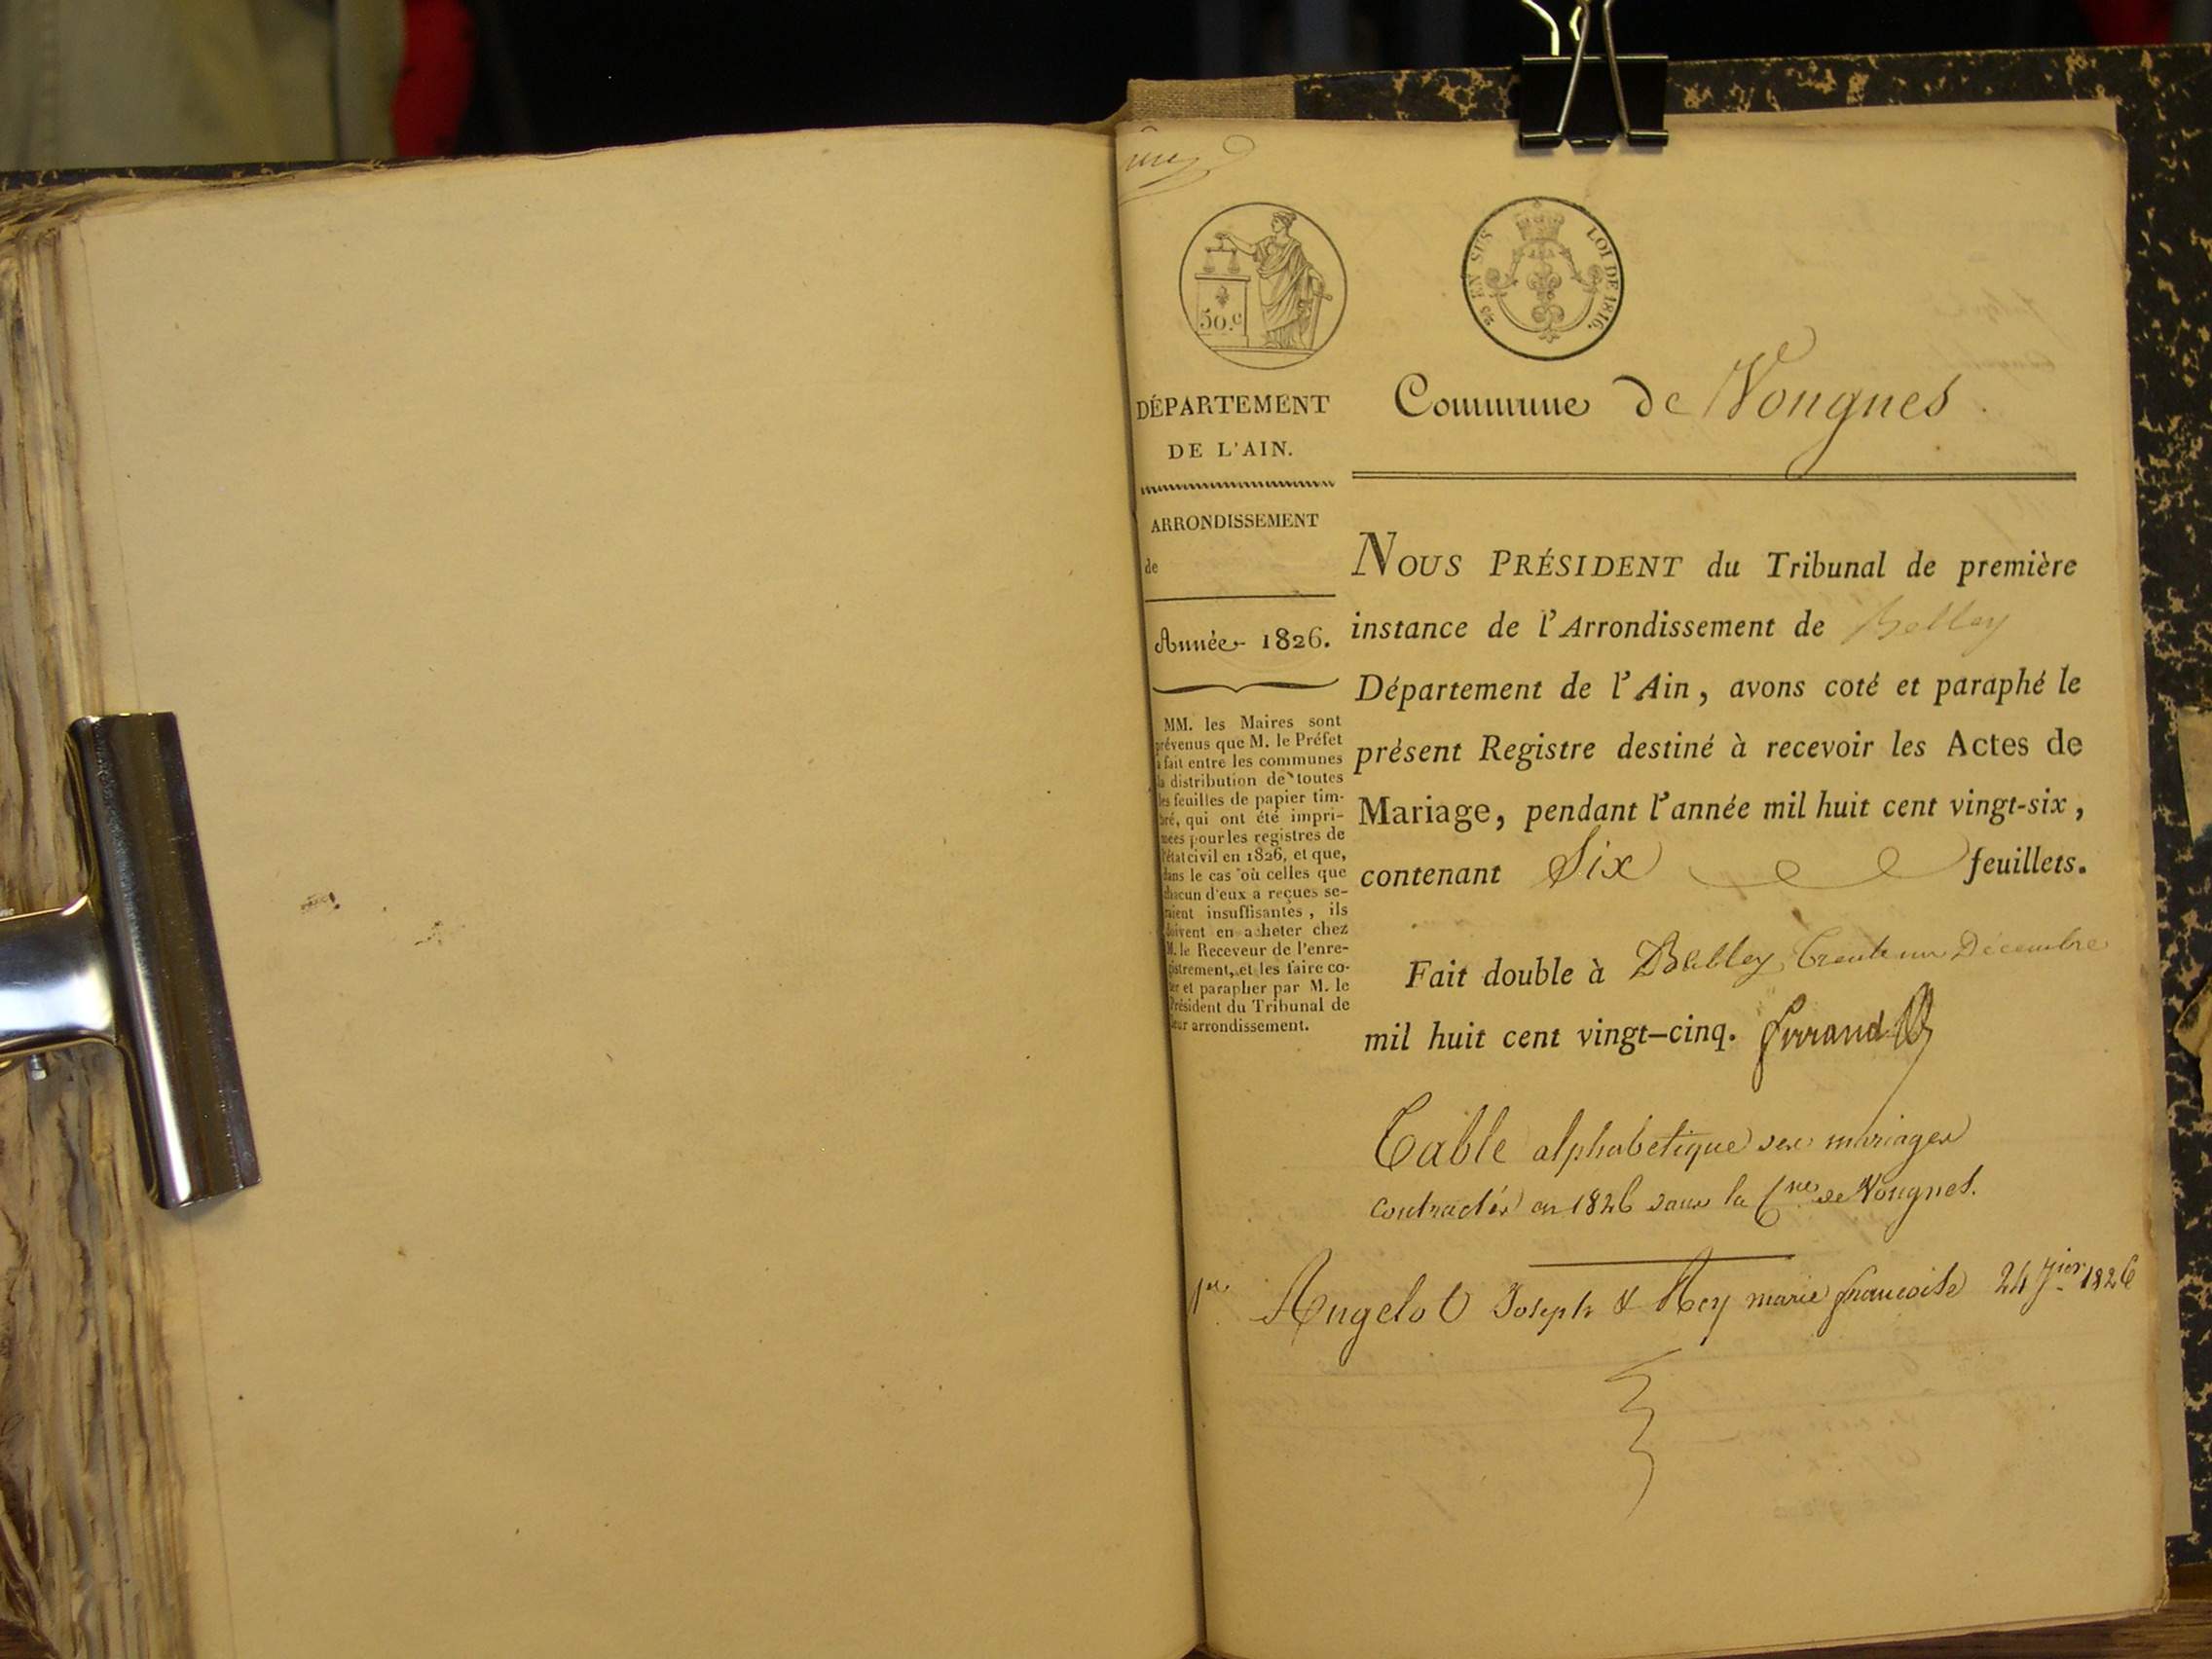 50.c
25 EN SUS LOI DE 1816.
DÉPARTEMENT
DE L'AIN.
ARRONDISSEMENT
de
Année 1826.
MM. les Maires sont
prévenus que M. le Préfet
a fait entre les communes
la distribution de toutes
les feuilles de papier tim-
bré, qui ont été impri-
mées pour les registres de
l'état civil en 1826, et que,
dans le cas où celles que
chacun d'eux a reçues se-
raient insuffisantes, ils
doivent en acheter chez
M. le Receveur de l'enre-
gistrement, et les faire co-
ter et parapher par M. le
Président du Tribunal de
leur arrondissement.
Commune de Vongnes
NOUS PRÉSIDENT du Tribunal de première
instance de l'Arrondissement de Belley
Département de l'Ain, avons coté et paraphé le
présent Registre destiné à recevoir les Actes de
Mariage, pendant l'année mil huit cent vingt-six,
contenant Six feuillets.
Fait double à Belley, trente un Décembre
mil huit cent vingt-cinq.
Table alphabetique des mariages
contractés en 1826 dans la Cne de Vongnes.
Angelot Joseph & Rey marie francoise 24 Jier 1826